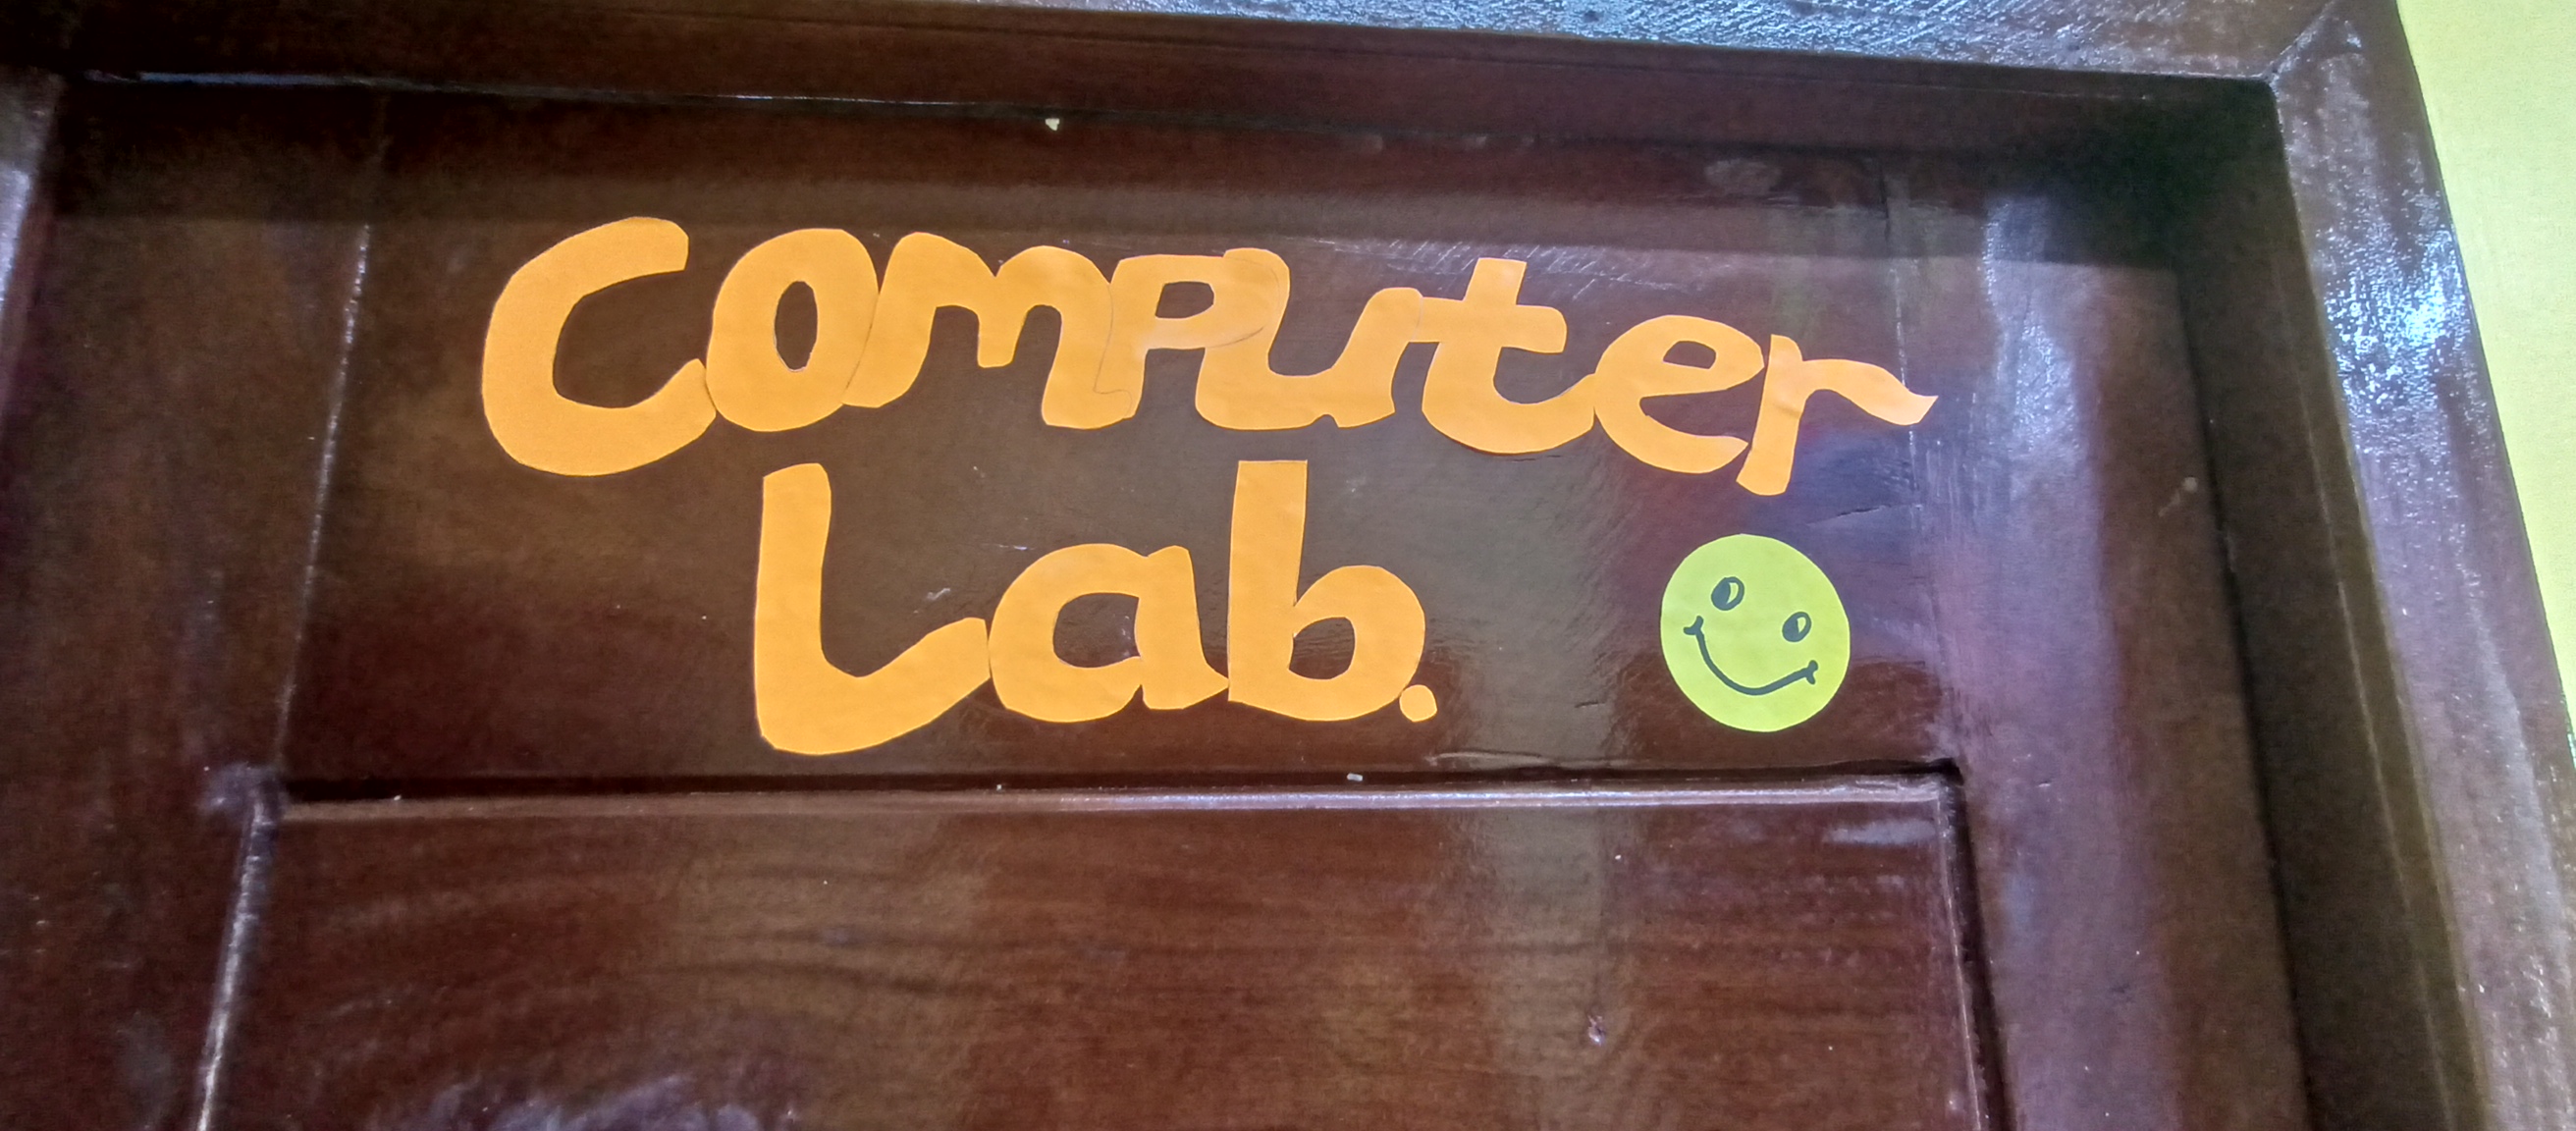 Computer
Lab.